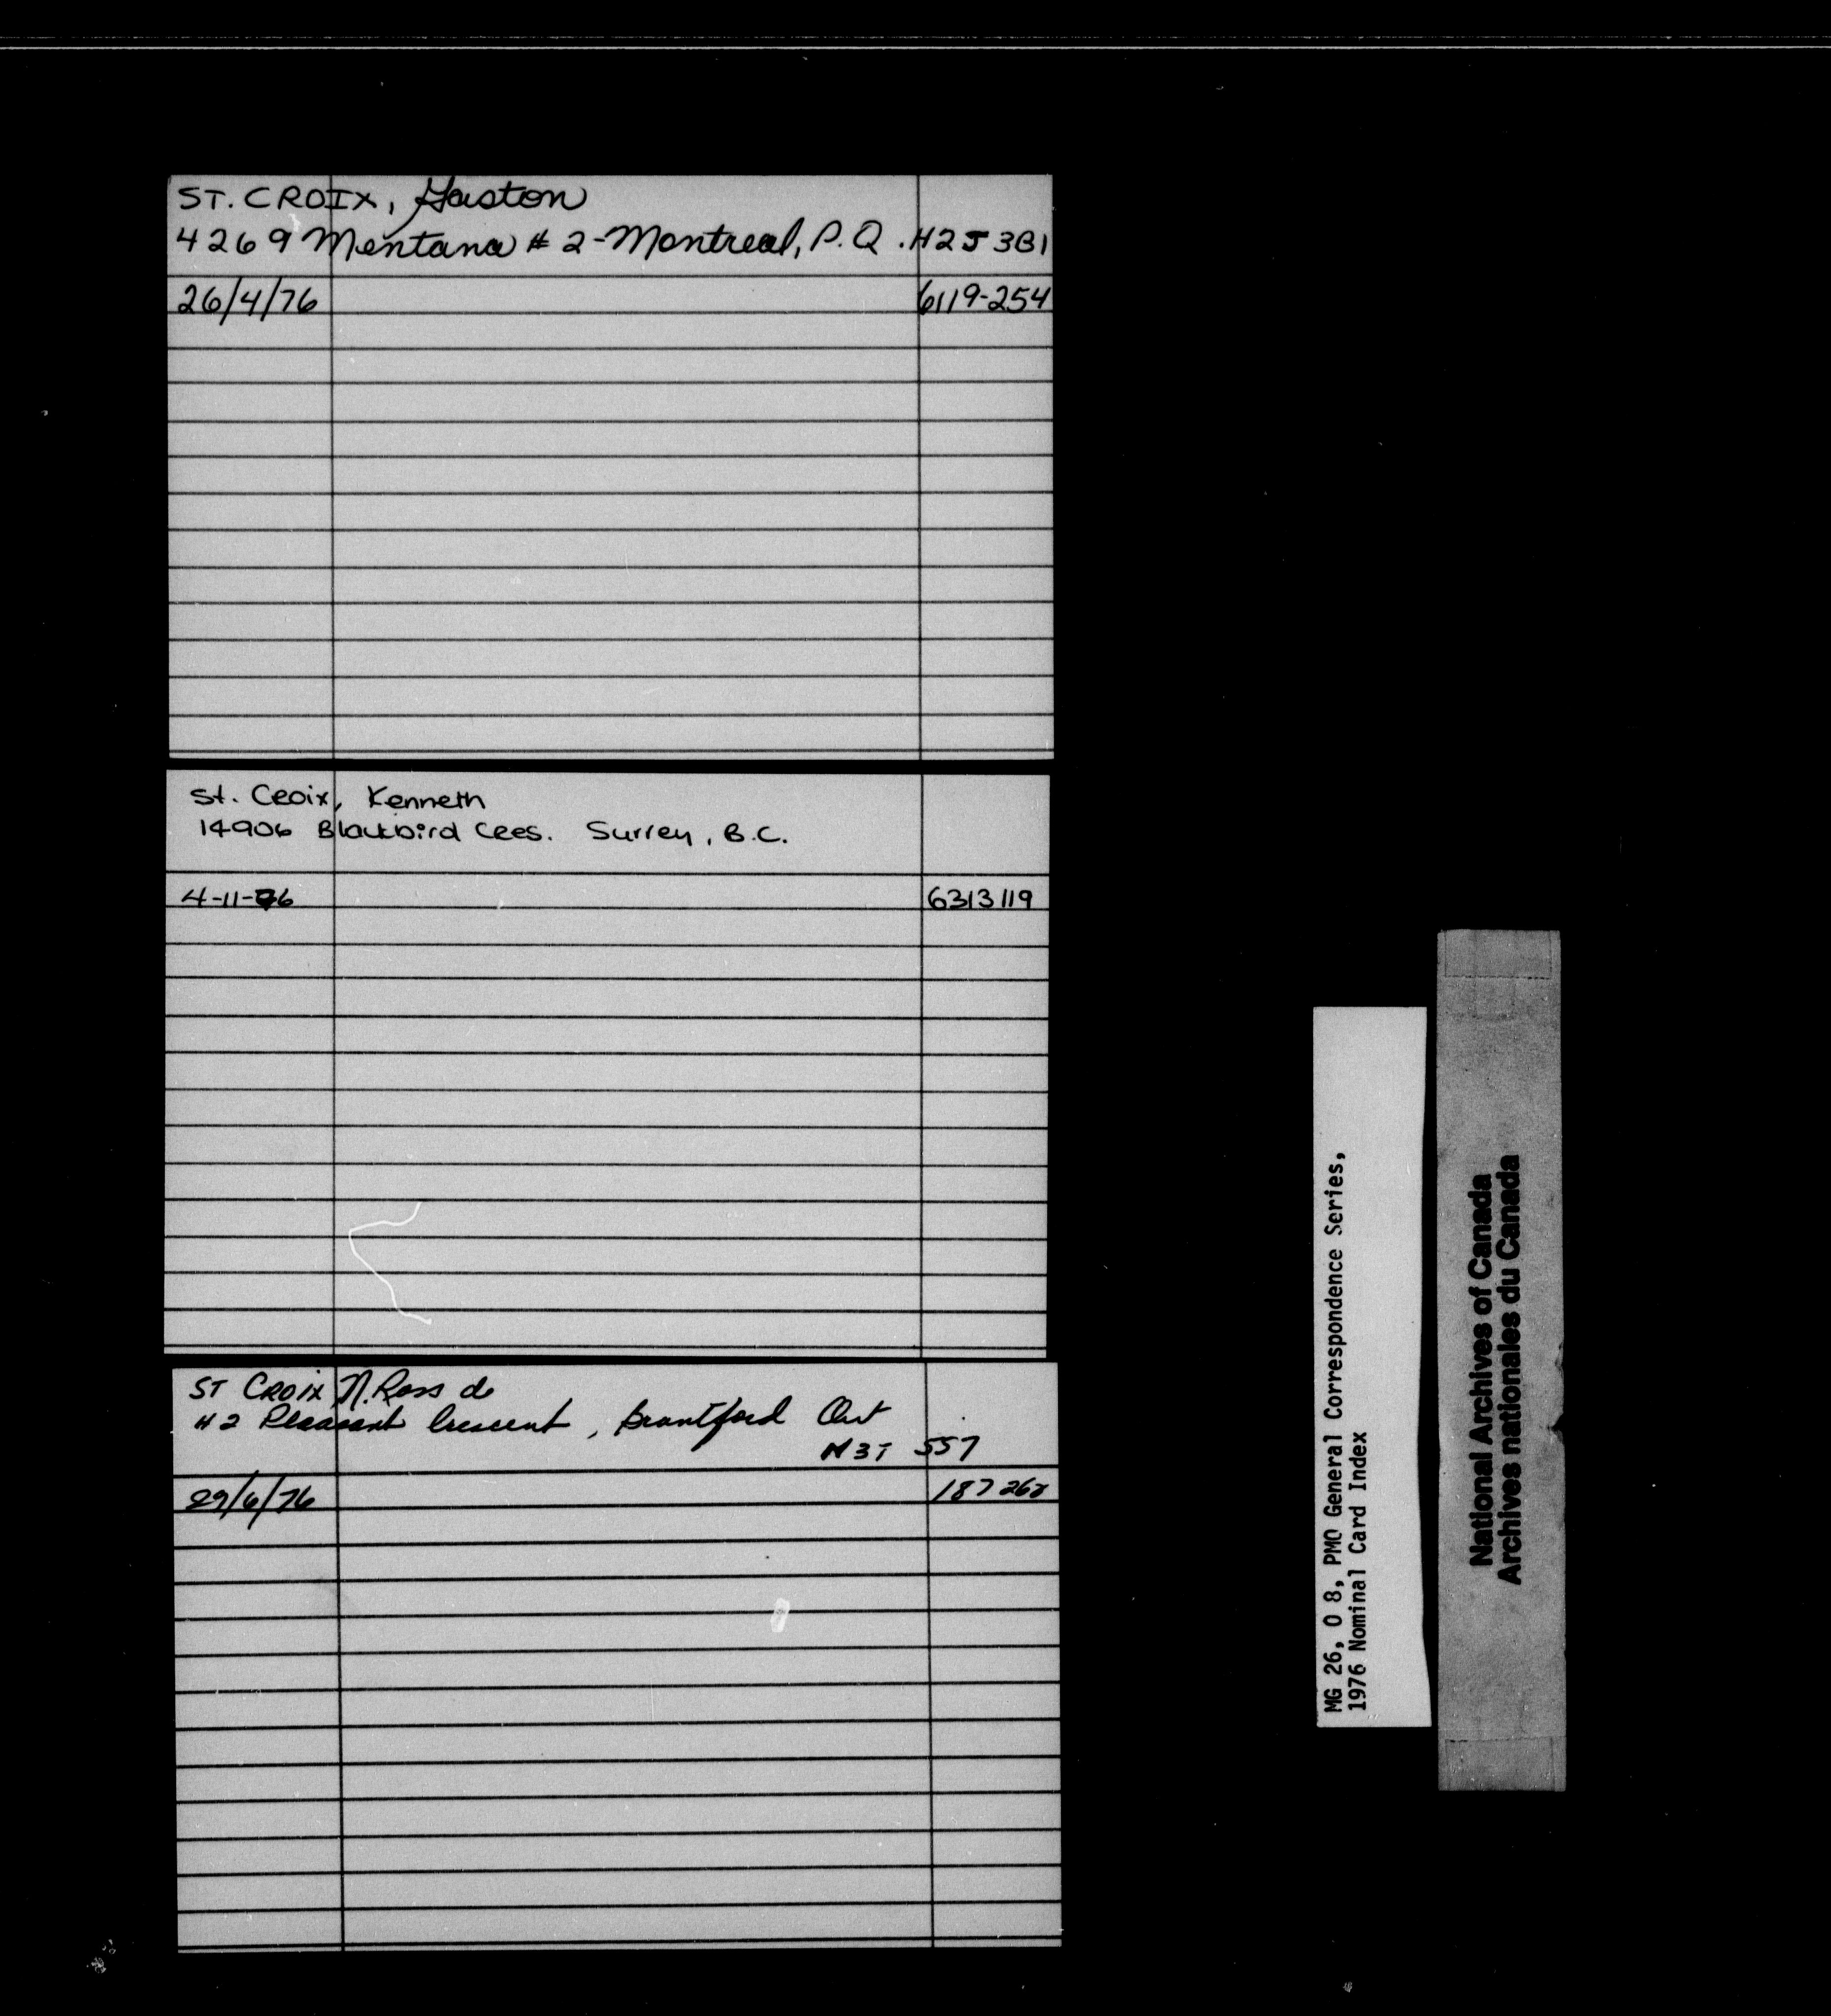 ST. CROIX, Gaston
4269 Mentana # 2 - Montreal, P.Q. H2J 3B1
26/4/76 6119-254
St. Croix, Kenneth
14906 Blackbird Cres. Surrey, B.C.
4-11-76 6313119
ST CROIX N. Ross de
# 2 Pleasant Crescent, Brantford Ont
N3T 5S7
29/6/76
MG 26, O 8, PMO General Correspondence Series,
1976 Nominal Card Index
National Archives of Canada
Archives nationales du Canada